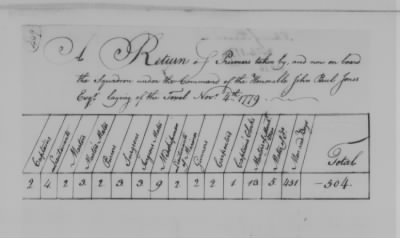 A Return of Prisoners taken by, and now on board
the Squadron under the Command of the Honorable John Paul Jones
Esqr. laying of the Texel Novr. 4th. 1779
Captains Lieutenants Masters Masters Mates Pursers Surgeons Surgeons Mates Midshipmen Lieutenants of Marines Gunners Carpenters Captains Clerks Masters of Mates of Do. Men and Boys Total
2 4. 2 3 2 3 3 9 2 2 2 1 13 5 431 —504.